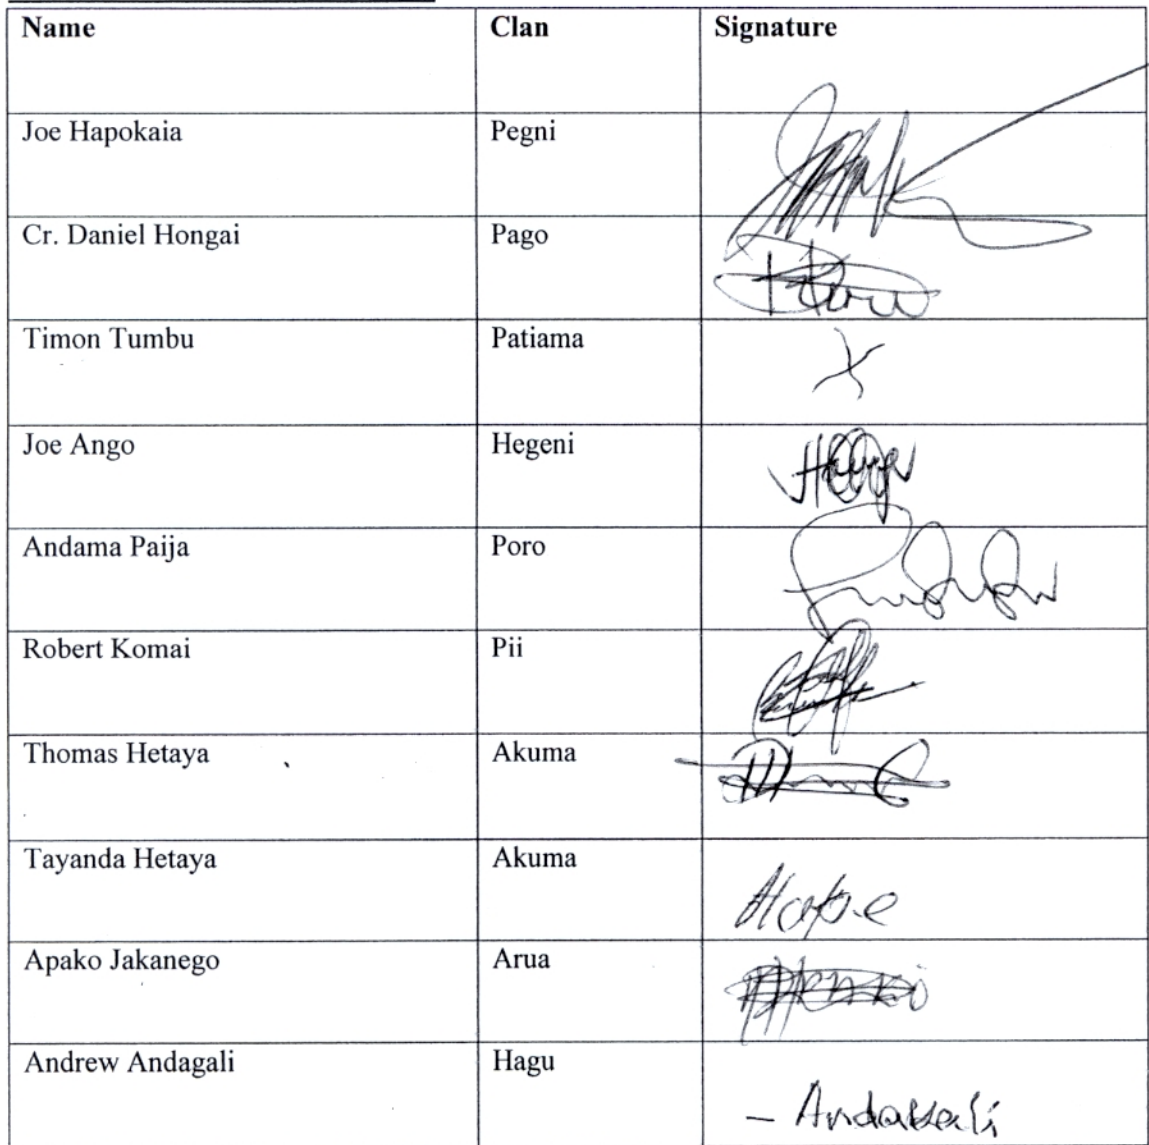 Name Clan Signature
Joe Hapokaia Pegni
Cr. Daniel Hongai Pago
Timon Tumbu Patiama
Joe Ango Hegeni
Andama Paija Poro
Robert Komai Pii
Thomas Hetaya Akuma
Tayanda Hetaya Akuma
Apako Jakanego Arua
Andrew Andagali Hagu